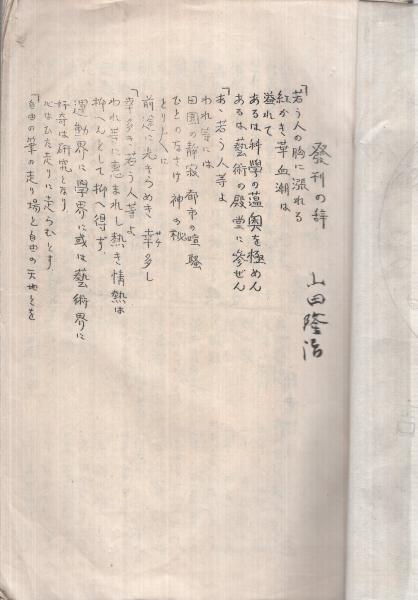 發刊の辞
山田隆治
「若う人の胸に漲れる
紅かき革血潮は
溢れて
あるは科學の蘊奥を極めん
あるは藝術の殿堂に參ぜん
「あゝ若う人等よ
われ等には
田園の静寂 都市の喧騒
ひとのなさけ 神の秘
とりどりに
前途に光きらめき 幸多し
「幸多き若う人等よ
われ等に恵まれし熱き情熱は
抑へんとして抑へ得ず
運動界に學界に或は藝術界に
好奇は研究となり
心はひた走りに走らむとす
「自由の筆の走り場と自由の天地とを